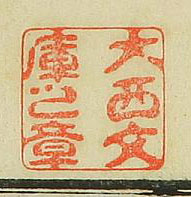 大西文
庫之章